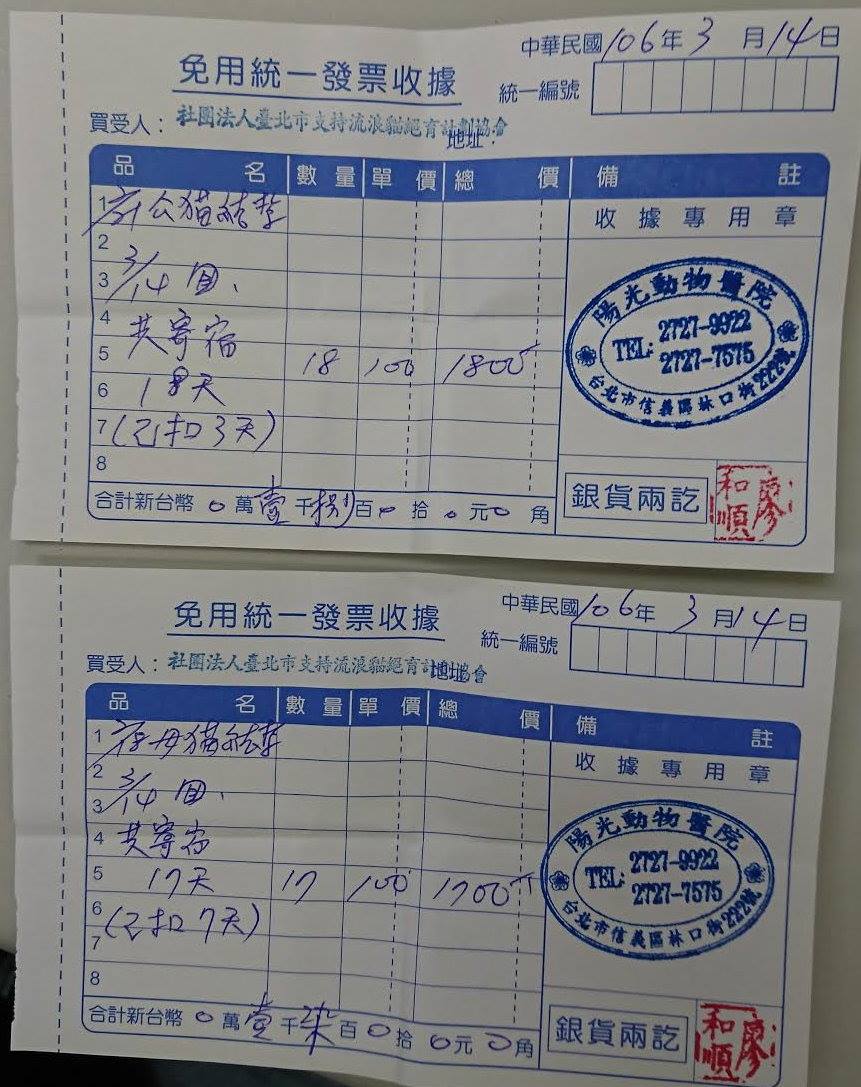 中華民國106年3月14日
免用統一發票收據
統一編號
買受人：社團法人臺北市支持流浪貓絕育計劃協會
地址：
品名 數量 單價 總價 備註
收據專用章
1 公猫結紮
2
3 3/14回、
4 共寄宿
5 18 100 1800
6 18天
7 (已扣3天)
8
陽光動物醫院
TEL: 2727-9922
2727-7575
台北市信義區林口街222號
合計新台幣0萬壹千捌百0拾0元0角
銀貨兩訖
廖和順
中華民國106年3月14日
免用統一發票收據
統一編號
買受人：社團法人臺北市支持流浪貓絕育計劃協會
地址
品名 數量 單價 總價 備註
收據專用章
1 母猫結紮
2
3 3/14回、
4 共寄宿
5 17天 17 100 1700
6 (已扣7天)
7
8
陽光動物醫院
TEL: 2727-9922
2727-7575
台北市信義區林口街222號
合計新台幣0萬壹千柒百0拾0元0角
銀貨兩訖
廖和順